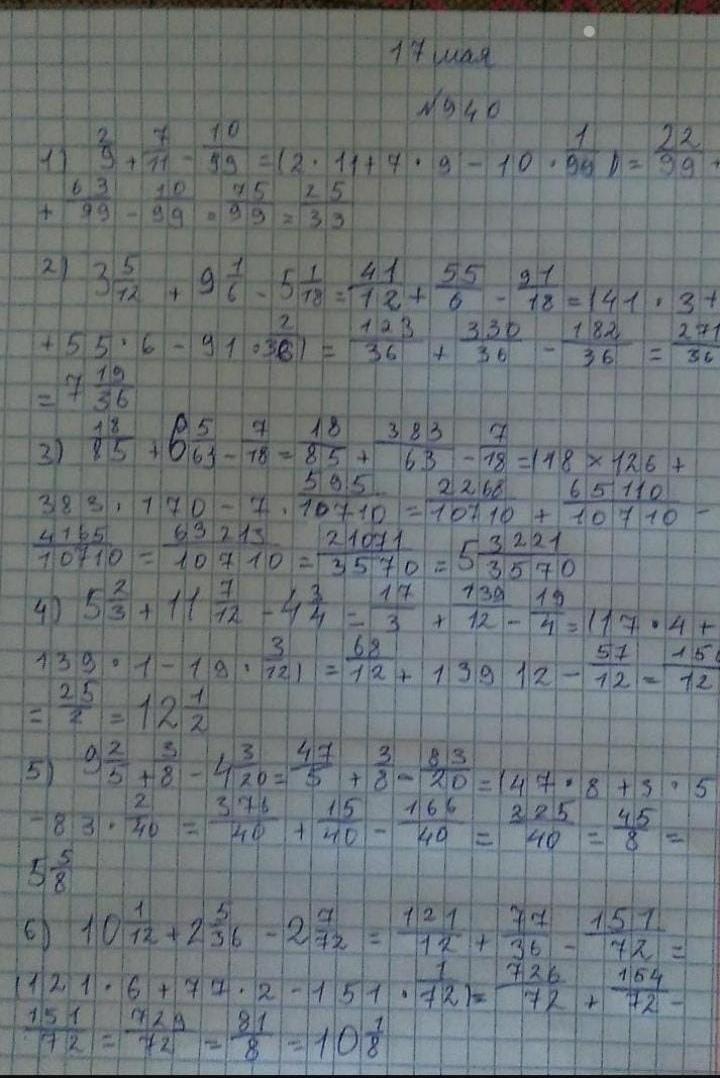 17 мая
№940
1) 2/9 + 7/11 - 10/99 = (2 · 11 + 7 · 9 - 10 · 1/99) = 22/99 +
+ 63/99 - 10/99 = 75/99 = 25/33
2) 3 5/12 + 9 1/6 - 5 1/18 = 41/12 + 55/6 - 91/18 = (41 · 3 +
+ 55 · 6 - 91 · 2/36) = 123/36 + 330/36 - 182/36 = 271/36
= 7 19/36
3) 18/85 + 6 5/63 - 7/18 = 18/85 + 383/63 - 7/18 = (18 × 126 +
383 · 170 - 7 · 595/10710 = 2268/10710 + 65110/10710 -
4165/10710 = 63213/10710 = 21071/3570 = 5 3221/3570
4) 5 2/3 + 11 7/12 - 4 3/4 = 17/3 + 139/12 - 19/4 = (17 · 4 +
139 · 1 - 19 · 3/12) = 68/12 + 139 12 - 57/12 = 150/12
= 25/2 = 12 1/2
5) 9 2/5 + 3/8 - 4 3/20 = 47/5 + 3/8 - 83/20 = (47 · 8 + 3 · 5
- 83 · 2/40 = 376/40 + 15/40 - 166/40 = 225/40 = 45/8 =
5 5/8
6) 10 1/12 + 2 5/36 - 2 7/72 = 121/12 + 77/36 - 151/72 =
(121 · 6 + 77 · 2 - 151 · 1/72) = 726/72 + 154/72 -
151/72 = 729/72 = 81/8 = 10 1/8